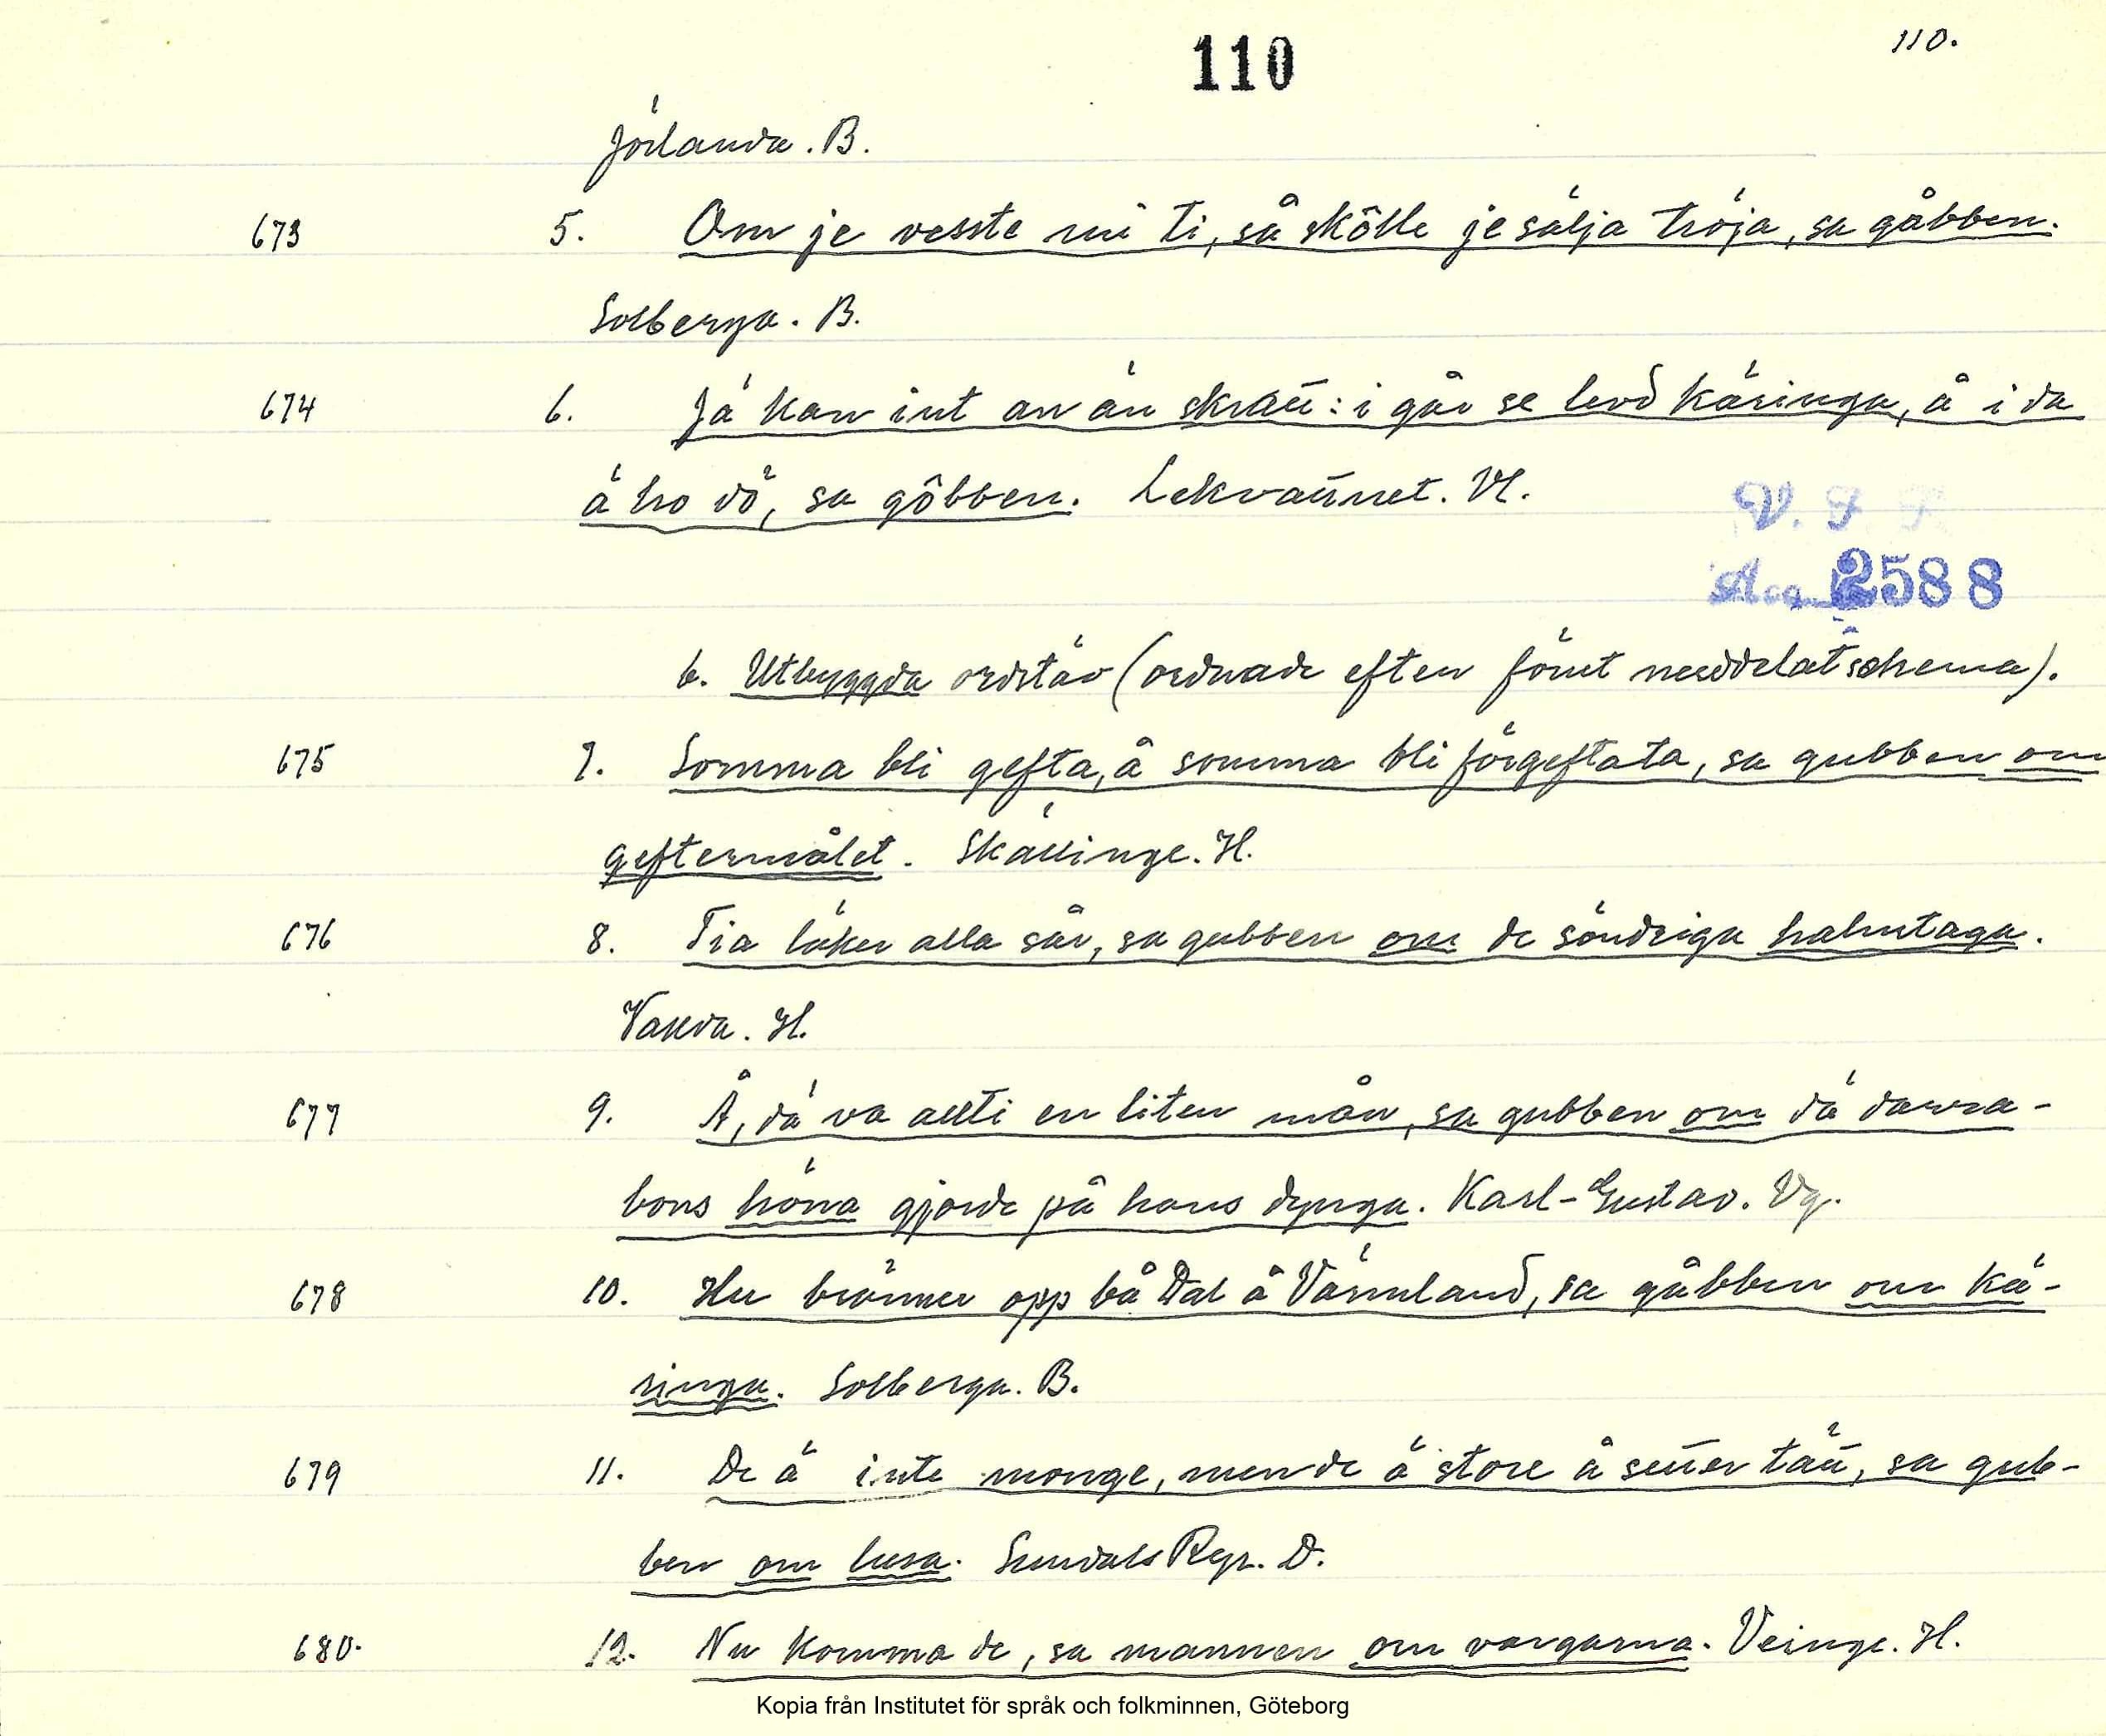 110
110.
Jörlanda. B.
673 5. Om je vesste mi ti, så skôlle je sälja tröja, sa gåbben.
Solberga. B.
674 6. Jä kan int an än skratt: i går se levd käringa, å i da
ä ho dö, sa gôbben. Lekvattnet. Vl.
V. F
Acc. 2588
b. Utbyggda ordstäv (ordnade efter förut meddelat schema).
675 7. Somma bli gefta, å somma bli förgeftata, sa gubben om
geftermålet. Skällinge. H.
676 8. Tia läker alla sår, sa gubben om de söndriga halmtaga.
Valda. H.
677 9. Å, dä va allti en liten mån, sa gubben om dä darra-
bons höna gjorde på hans dynga. Karl-Gustav. Vg.
678 10. Hu bränner opp bå Dal å Värmland, sa gåbben om kä-
ringa. Solberga. B.
679 11. De ä inte monge, men de ä store å setter tätt, sa gub-
ben om lusa. Sundals Ryr. D.
680. 12. Nu komma de, sa mannen om vargarna. Veinge. H.
Kopia från Institutet för språk och folkminnen, Göteborg